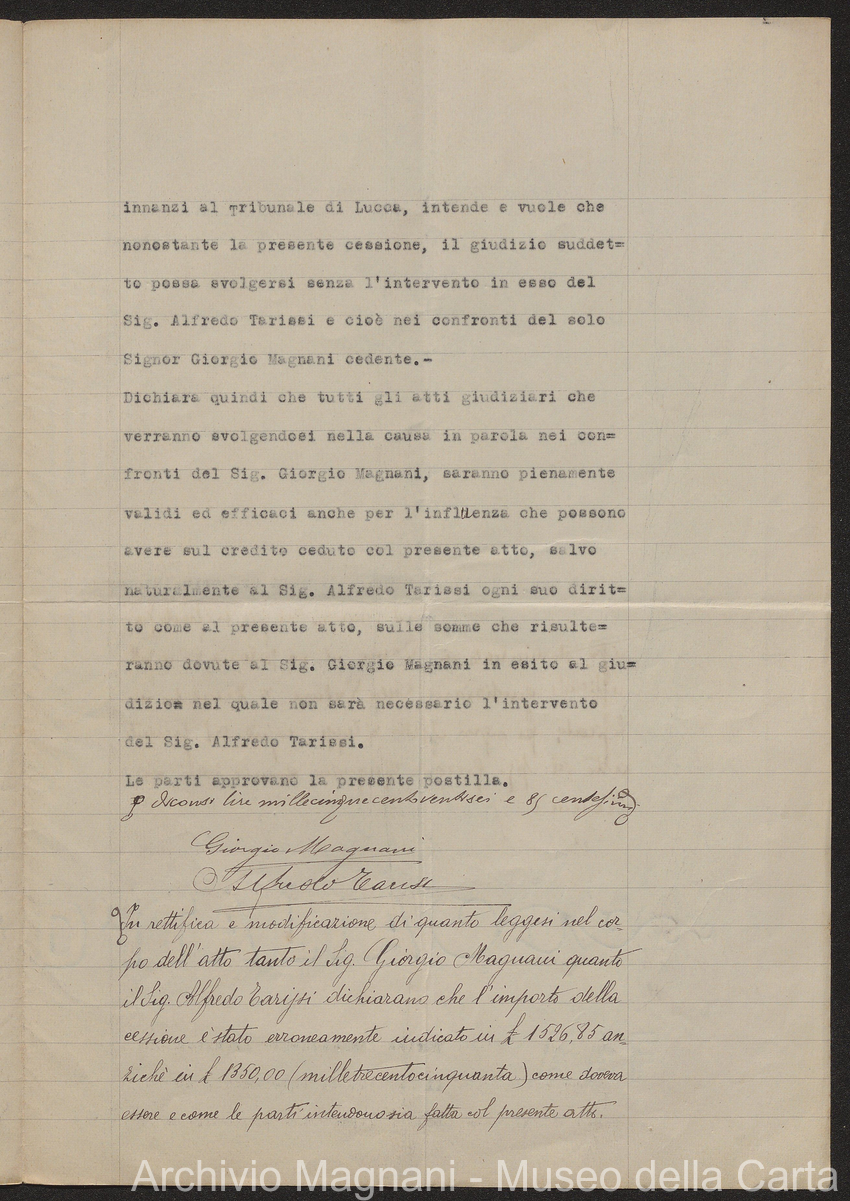 innanzi al Tribunale di Lucca, intende e vuole che
nonostante la presente cessione, il giudizio suddet=
to possa svolgersi senza l'intervento in esso del
Sig. Alfredo Tarissi e cioè nei confronti del solo
Signor Giorgio Magnani cedente.-
Dichiara quindi che tutti gli atti giudiziari che
verranno svolgendosi nella causa in parola nei con=
fronti del Sig. Giorgio Magnani, saranno pienamente
validi ed efficaci anche per l'influenza che possono
avere sul credito ceduto col presente atto, salvo
naturalmente al Sig. Alfredo Tarissi ogni suo dirit=
to come al presente atto, sulle somme che risulte=
ranno dovute al Sig. Giorgio Magnani in esito al giu=
dizio= nel quale non sarà necessario l'intervento
del Sig. Alfredo Tarissi.
Le parti approvano la presente postilla.
diconsi lire millecinquecentoventisei e 85 centesimi
Giorgio Magnani
Alfredo Tarissi
In rettifica e modificazione di quanto leggesi nel cor-
po dell'atto tanto il Sig. Giorgio Magnani quanto
il Sig. Alfredo Tarissi dichiarano che l'importo della
cessione è stato erroneamente indicato in £ 1526,85 an-
zichè in £ 1350,00 (milletrecentocinquanta) come doveva
essere e come le parti intendono sia fatta col presente atto.
Archivio Magnani - Museo della Carta